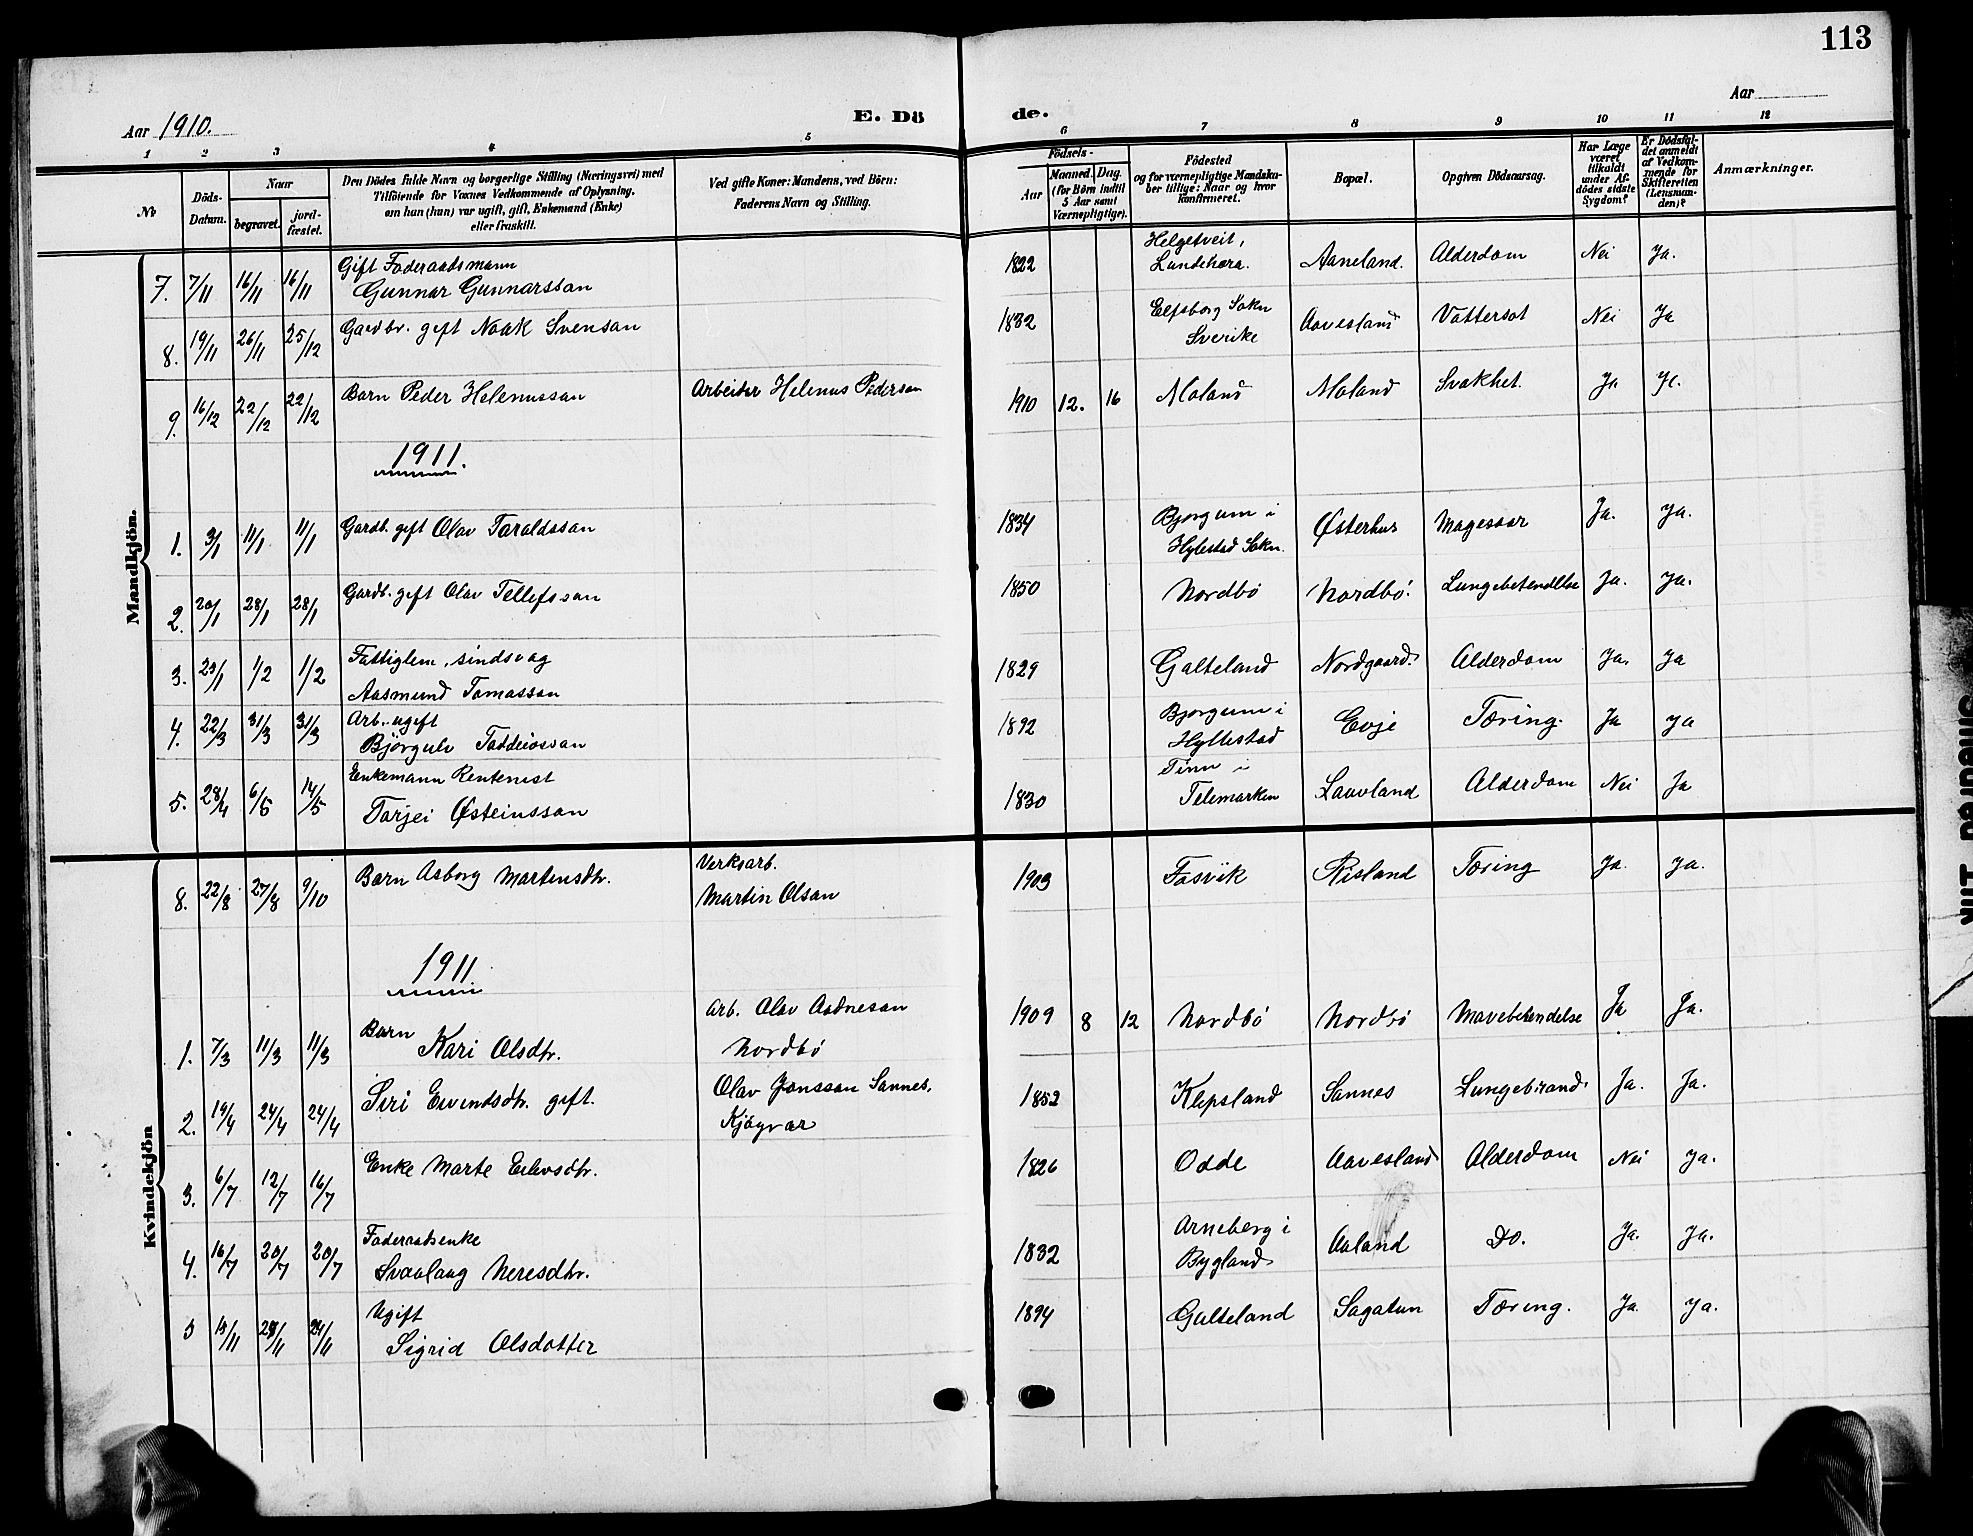 113
Aar 1910.
E. Dö de.
Aar
1 2 3 4 5 6 7 8 9 10 11 12
No
Döds-Datum.
Naar
begravet.
jord-fæstet.
Den Dödes fulde Navn og borgerlige Stilling (Næringsvei) med
Tilföiende for Voxnes Vedkommende af Oplysning,
om han (hun) var ugift, gift, Enkemand (Enke)
eller fraskilt.
Ved gifte Koner: Mandens, ved Börn:
Faderens Navn og Stilling.
Födsels-
Aar
Maaned. Dag.
(for Börn indtil
5 Aar samt
Værnepligtige).
Födested
og for værnepligtige Mandska-
ber tillige: Naar og hvor
konfirmeret.
Bopæl.
Opgiven Dödsaarsag.
Har Læge
været
tilkaldt
under Af-
dödes sidste
Sygdom?
Er Dödsfal-
det anmeldt
af Vedkom-
mende for
Skifteretten
(Lensman-
den)?
Anmærkninger.
Mandkjön.
Gift Foderaadsmann
7. 7/11 16/11 16/11 Gunnar Gunnarsson 1822 Helgetveit, Aaneland. Alderdom Nei Ja.
8. 19/11 26/11 25/12 Gardbr. gift Noak Svenson 1832 Elfsborg Sokn Sverike Aavesland Vattersot Nei Ja
9. 16/12 22/12 22/12 Barn Peder Helenusson Arbeidar Helenus Pederson 1910 12. 16 Moland Moland Svakhet. Ja Ja.
1911.
1. 3/1 11/1 11/1 Gardb. gift Olav Taraldsson 1834 Bjorgum i Hylestad Sokn. Østerhus Magesaar Ja. Ja.
2. 20/1 28/1 28/1 Gardb. gift Olav Tellefsson 1850 Nordbø Nordbø. Lungebetendelse Ja. Ja.
3. 23/1 1/2 1/2 Fattiglem, sindsvag
Aasmund Tomasson 1829 Galteland Nordgaard. Alderdom Ja. Ja
4. 22/3 31/3 31/3 Arb. ugift
Bjørgulv Taddeiosson 1892 Bjorgum i Hyllestad Evje Tæring. Ja Ja
5. 28/4 6/5 14/5 Enkemann Rentenist
Tarjei Østeinsson 1830 Tinn i Telemarken Laavland Alderdom Nei Ja
Kvindekjön
8. 22/8 27/8 9/10 Barn Asborg Martensdtr. Verksarb.
Martin Olson 1903 Fosvik Risland Tæring Ja. Ja.
1911
1. 7/3 11/3 11/3 Barn
Kari Olsdtr. Arb. Olav Aadneson
Nordbø 1909 8 12 Nordbø Nordbø Mavebetendelse Ja Ja.
2. 19/4 24/4 24/4 Siri Eivindsdtr. gift. Olav Jonsson Sannes,
1852 Klepsland Sannes Lungebrand. Ja. Ja.
3. 6/7 12/7 16/7 Enke Marte Eilevsdtr. 1826 Odde Aavesland Alderdom Nei Ja.
4. 16/7 20/7 20/7 Foderaadsenke
Svaalaug Neresdtr. 1832 Arneberg i Bygland Aaland Do. Ja. Ja.
5 Ugift
Sigrid Olsdotter 1894 Galteland Sagatun Tæring. Ja. Ja.